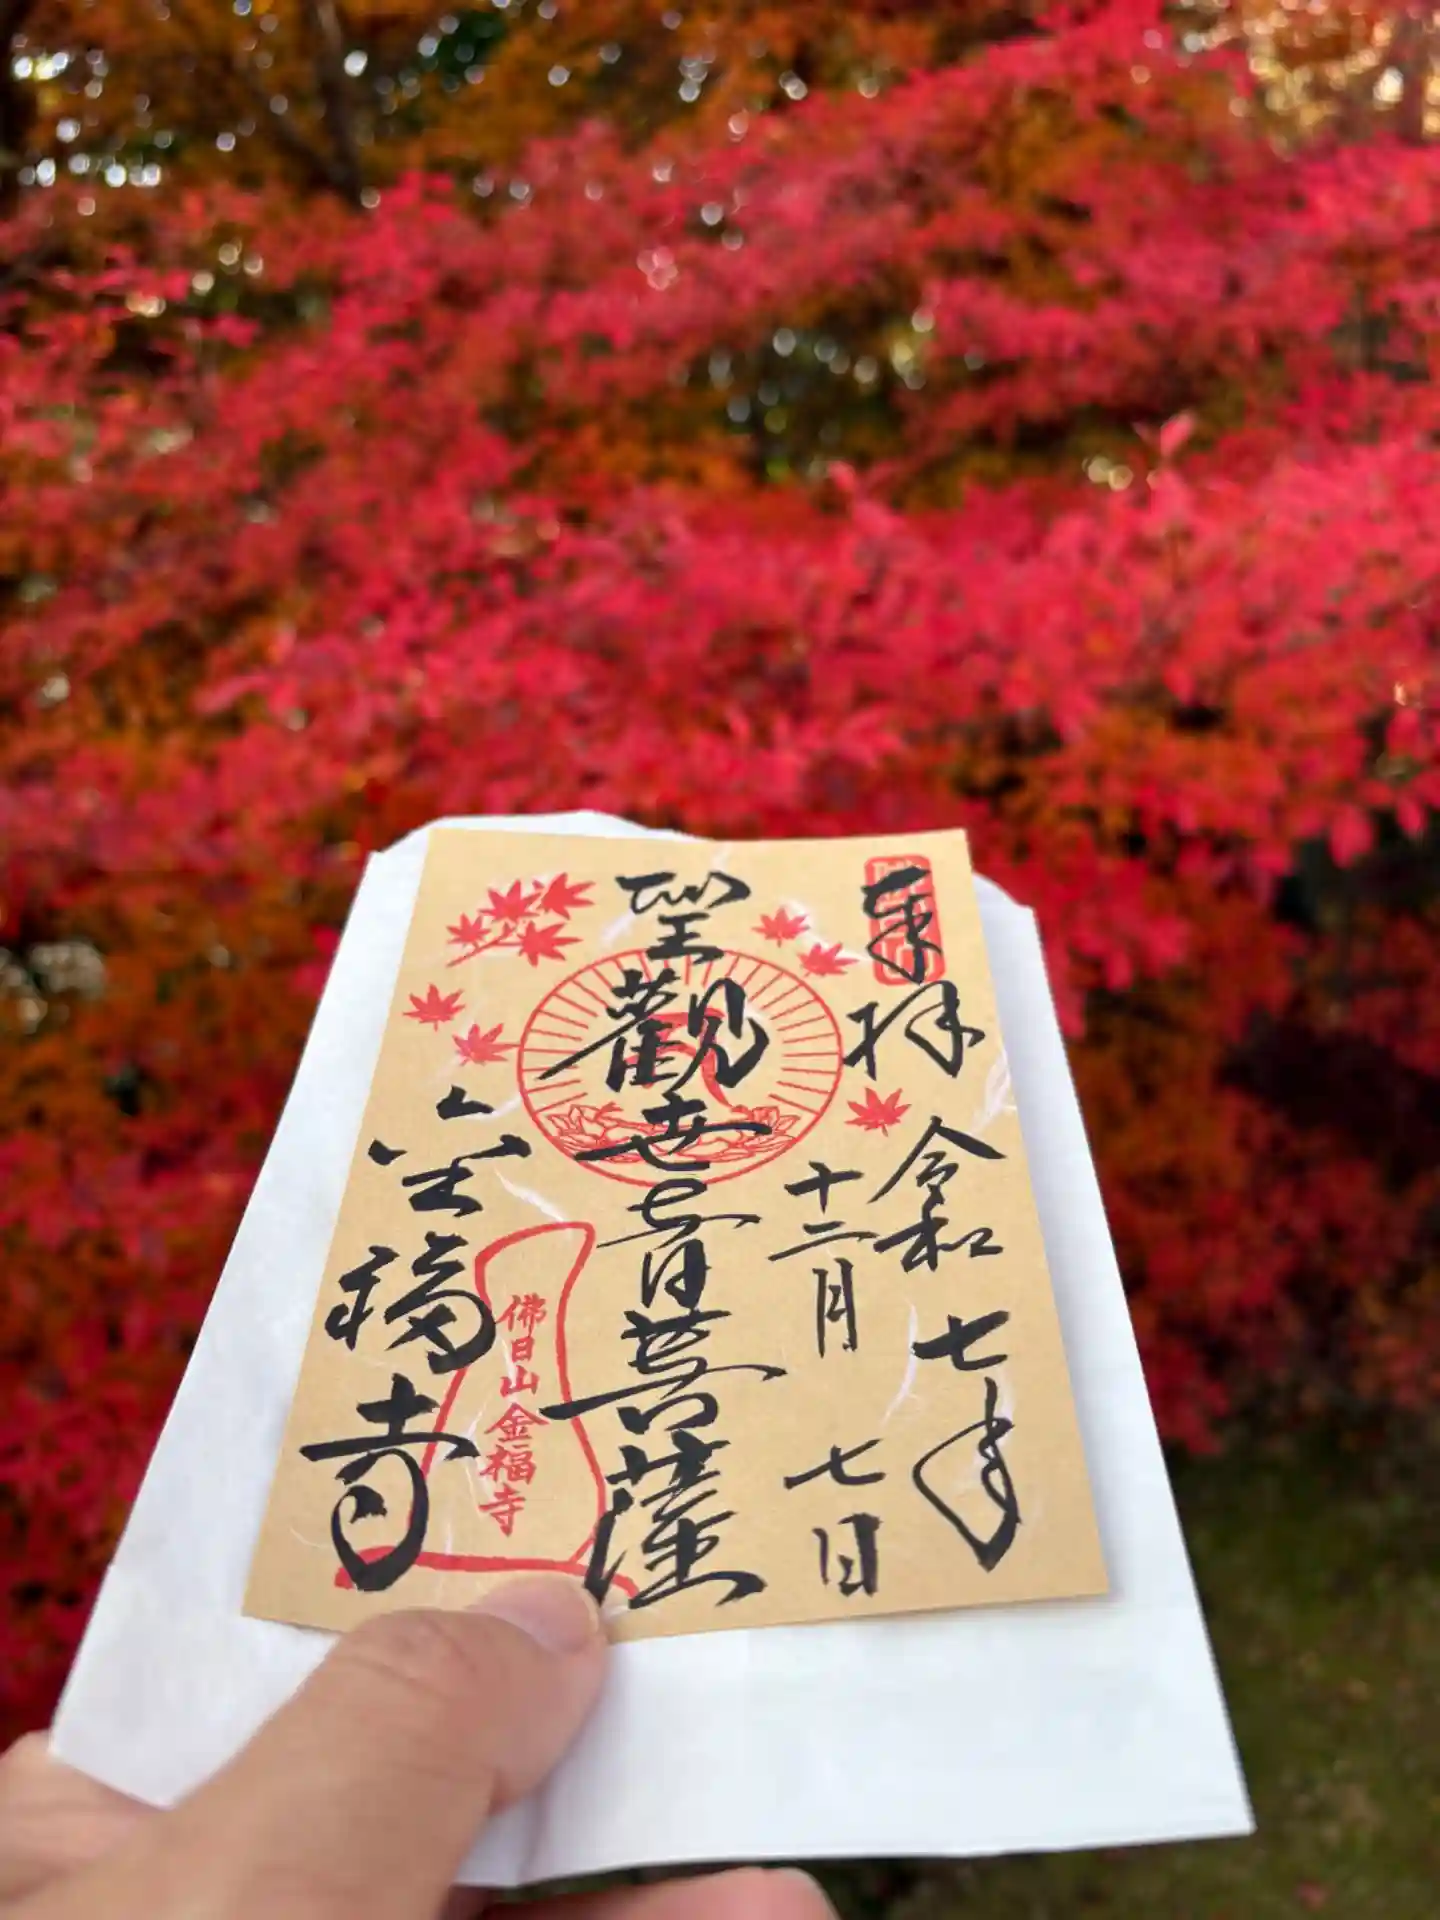 奉拝
令和七年
十二月七日
聖觀世音菩薩
佛日山金福寺
金福寺